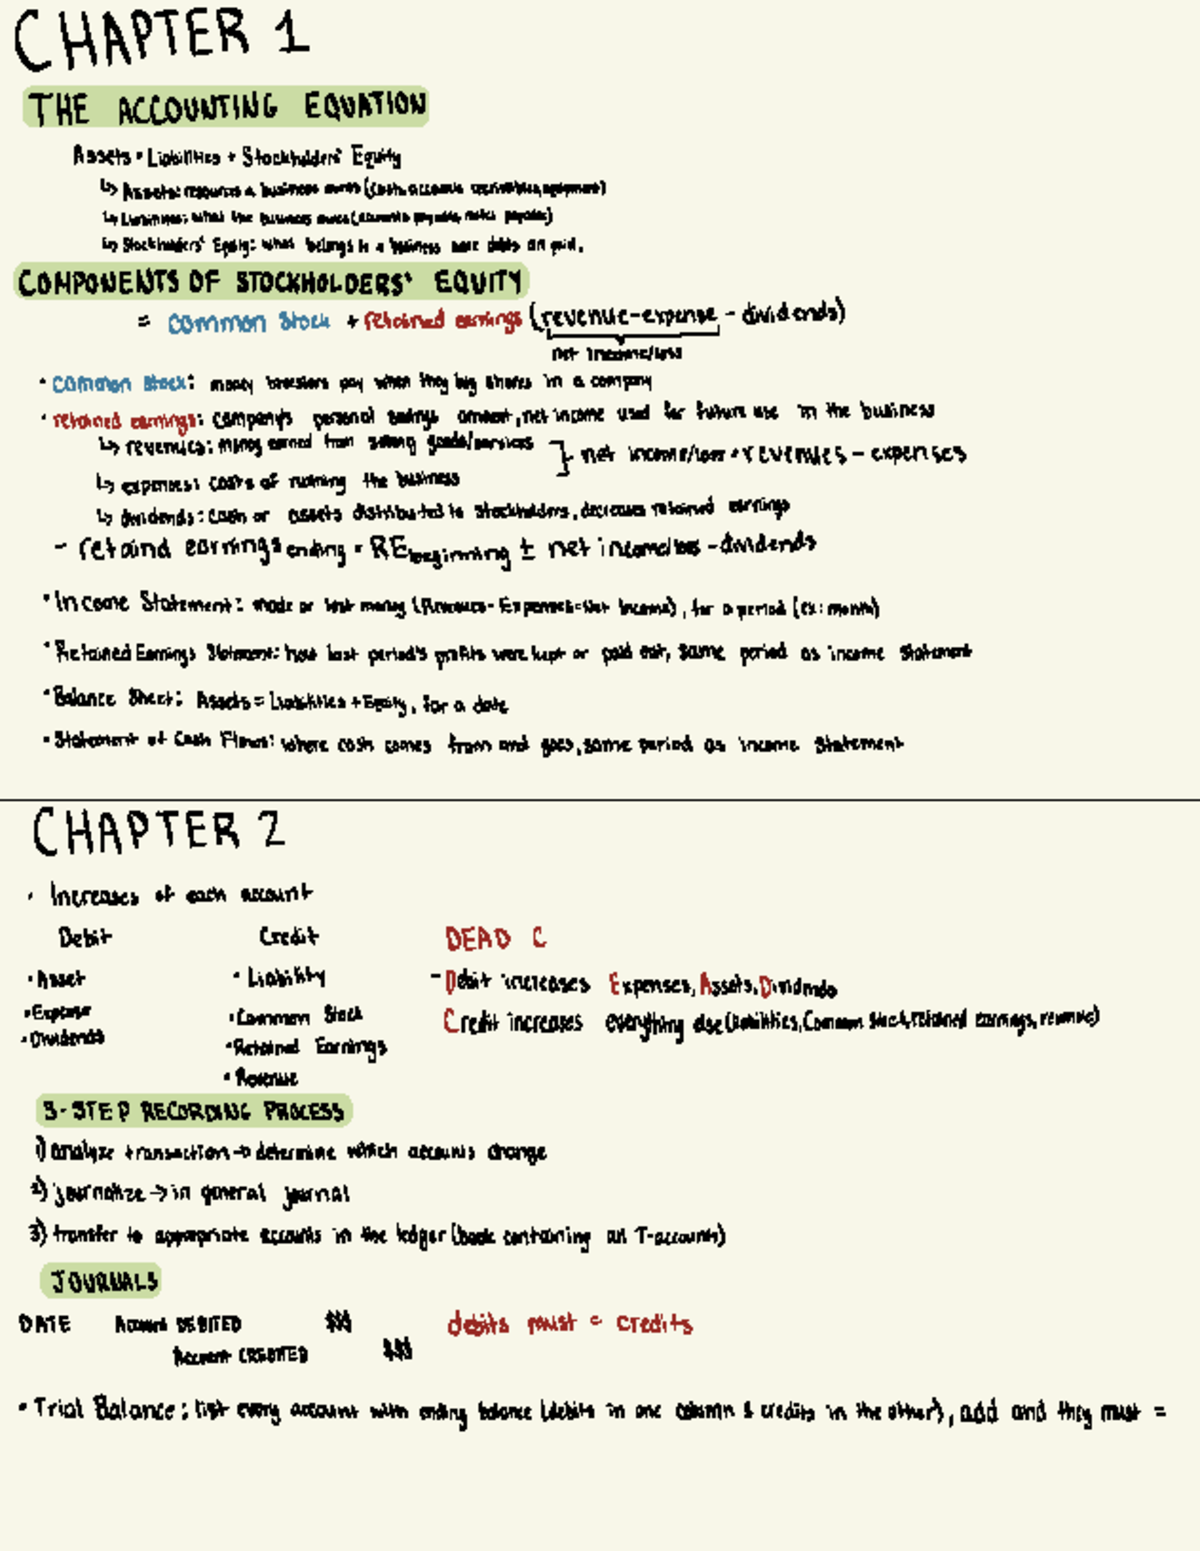 CHAPTER 1
THE ACCOUNTING EQUATION
Assets = Liabilities + Stockholders' Equity
↳ Assets: resources a business owns (cash, accounts receivables, equipment)
↳ Liabilities: what the business owes (accounts payable, notes payable)
↳ Stockholders' Equity: what belongs to a business once debts are paid.
COMPONENTS OF STOCKHOLDERS' EQUITY
= common stock + retained earnings (revenue-expense - dividends)
net income/loss
• common stock: money investors pay when they buy shares in a company
• retained earnings: company's personal savings amount, net income used for future use in the business
↳ revenues: money earned from selling goods/services
} net income/loss = revenues - expenses
↳ expenses: costs of running the business
↳ dividends: cash or assets distributed to stockholders, decreases retained earnings
- retaind earnings ending = RE beginning ± net income/loss - dividends
• Income Statement: made or lost money (Revenues - Expenses = Net Income), for a period (ex: month)
• Retained Earnings Statement: how last period's profits were kept or paid out, same period as income statement
• Balance Sheet: Assets = Liabilities + Equity, for a date
• Statement of Cash Flows: where cash comes from and goes, same period as income statement
CHAPTER 2
• Increases of each account
Debit Credit DEAD C
• Asset • Liability - Debit increases Expenses, Assets, Dividends
• Expense • Common Stock Credit increases everything else (liabilities, Common Stock, retained earnings, revenue)
• Dividends • Retained Earnings
• Revenue
3-STEP RECORDING PROCESS
1) analyze transaction → determine which accounts change
2) journalize → in general journal
3) transfer to appropriate accounts in the ledger (book containing all T-accounts)
JOURNALS
DATE Account DEBITED $$$ debits must = credits
Account CREDITED $$$
• Trial Balance: list every account with ending balance (debits in one column & credits in the other), add and they must =